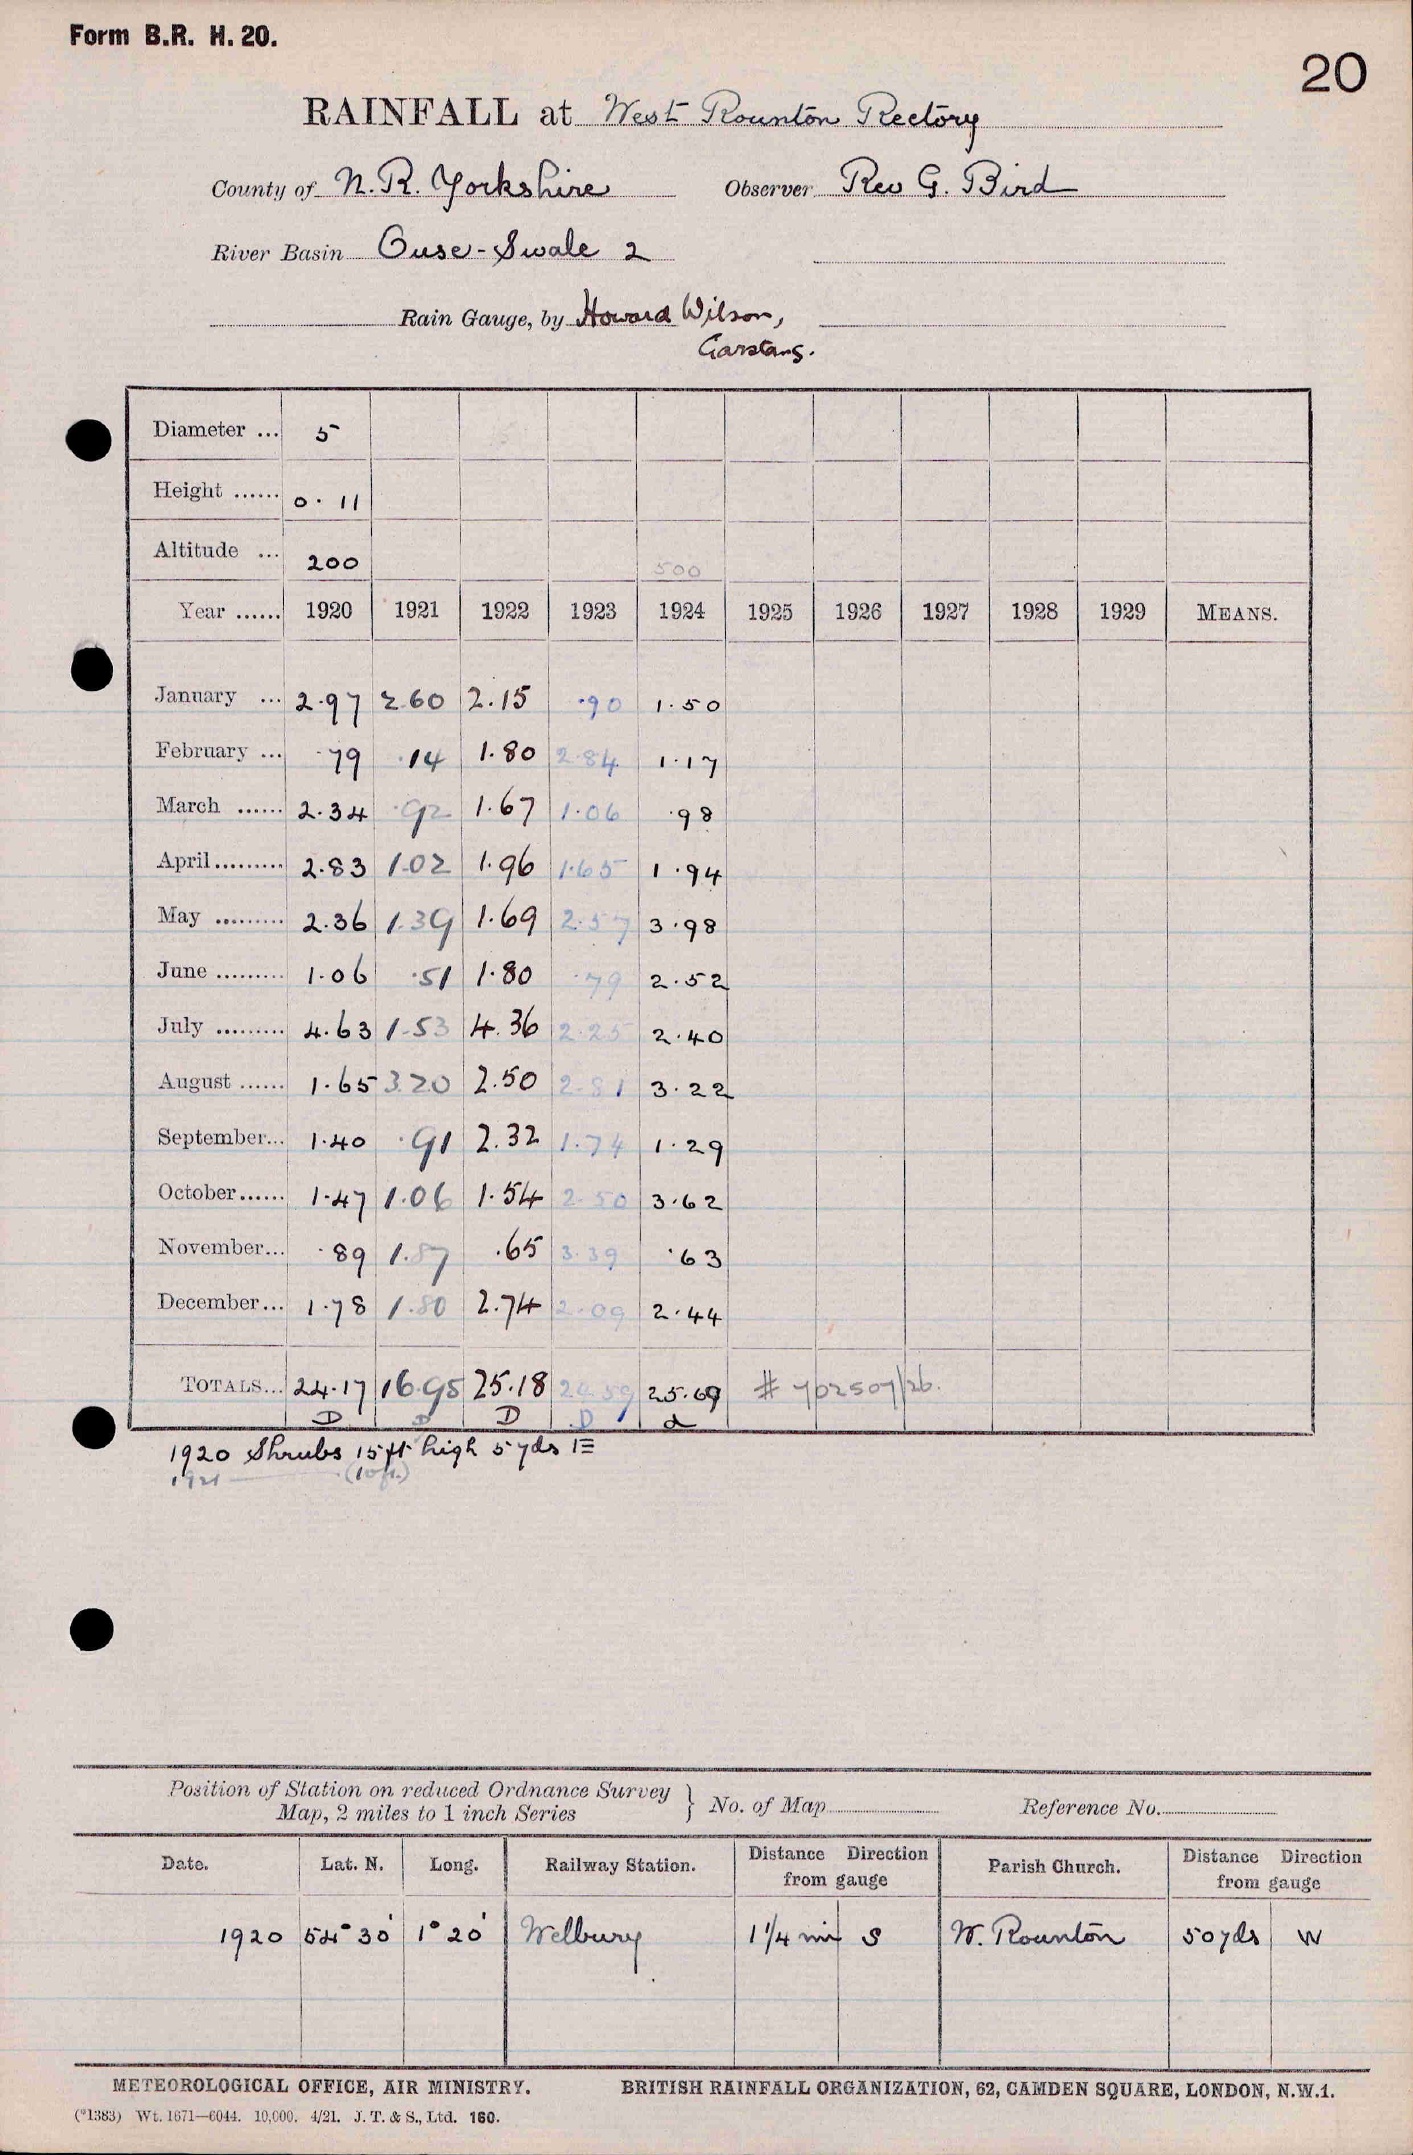 Form B.R. H. 20.
20
RAINFALL at West Rounton Rectory
County of N.R. Yorkshire Observer Rev G. Bird
River Basin Ouse-Swale 2
Rain Gauge, by Howard Wilson,
Garstang.
Diameter ... 5
Height ...... 0. 11
Altitude ... 200 500
Year ...... 1920 1921 1922 1923 1924 1925 1926 1927 1928 1929 MEANS.
January ... 2.97 2.60 2.15 .90 1.50
February ... .79 .14 1.80 2.84 1.17
March ...... 2.34 .92 1.67 1.06 .98
April ......... 2.83 1.02 1.96 1.65 1.94
May ......... 2.36 1.39 1.69 2.57 3.98
June ......... 1.06 .51 1.80 .79 2.52
July ......... 4.63 1.53 4.36 2.25 2.40
August ...... 1.65 3.20 2.50 2.81 3.22
September... 1.40 .91 2.32 1.74 1.29
October...... 1.47 1.06 1.54 2.50 3.62
November... .89 1.87 .65 3.39 .63
December... 1.78 1.80 2.74 2.09 2.44
TOTALS... 24.17 16.95 25.18 24.59 25.69 # 702507/26.
D D D D d
1920 Shrubs 15ft high 5 yds
1921 (10ft.)
Position of Station on reduced Ordnance Survey
Map, 2 miles to 1 inch Series } No. of Map Reference No.
Date. Lat. N. Long. Railway Station. Distance from gauge Direction Parish Church. Distance from gauge Direction
1920 54° 30' 1° 20' Welbury 1 1/4 mi S W. Rounton 50 yds W
METEOROLOGICAL OFFICE, AIR MINISTRY. BRITISH RAINFALL ORGANIZATION, 62, CAMDEN SQUARE, LONDON, N.W.1.
(*1383) Wt. 1671—6044. 10,000. 4/21. J. T. & S., Ltd. 160.